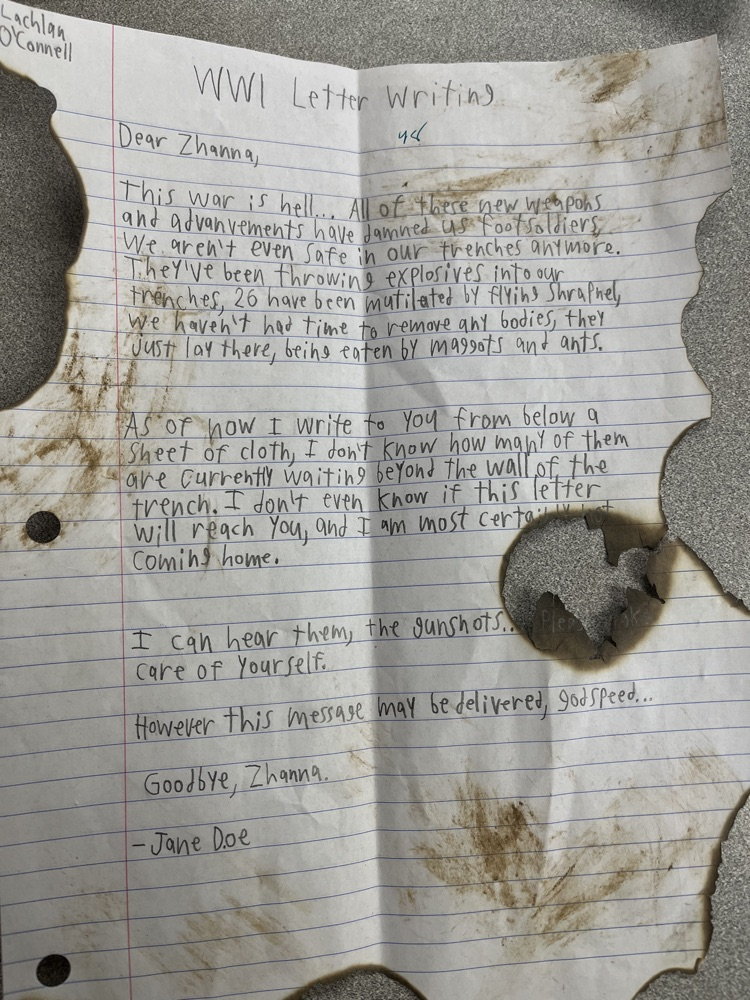 Lachlan
O'Connell
WW1 Letter Writing
Dear Zhanna,
This war is hell... All of these new weapons
and advanvements have damned us footsoldiers,
We aren't even safe in our trenches anymore.
They've been throwing explosives into our
trenches, 26 have been mutilated by flying shrapnel,
we haven't had time to remove any bodies, they
just lay there, being eaten by maggots and ants.
As of now I write to you from below a
sheet of cloth, I don't know how many of them
are currently waiting beyond the wall of the
trench. I don't even know if this letter
will reach you, and I am most certainly not
coming home.
I can hear them, the gunshots.. Please take
care of yourself.
However this message may be delivered, godspeed...
Goodbye, Zhanna.
-Jane Doe